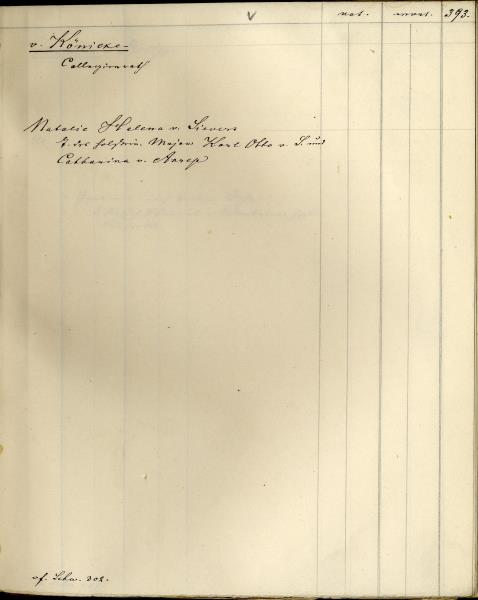 V nat. denat. 393.
v. Könicke
Collegienrath
Natalie Helena v. Sievers
T. des holstein. Major Karl Otto v. S. und
Catharina v. Anrep
cf. Schw. 202.